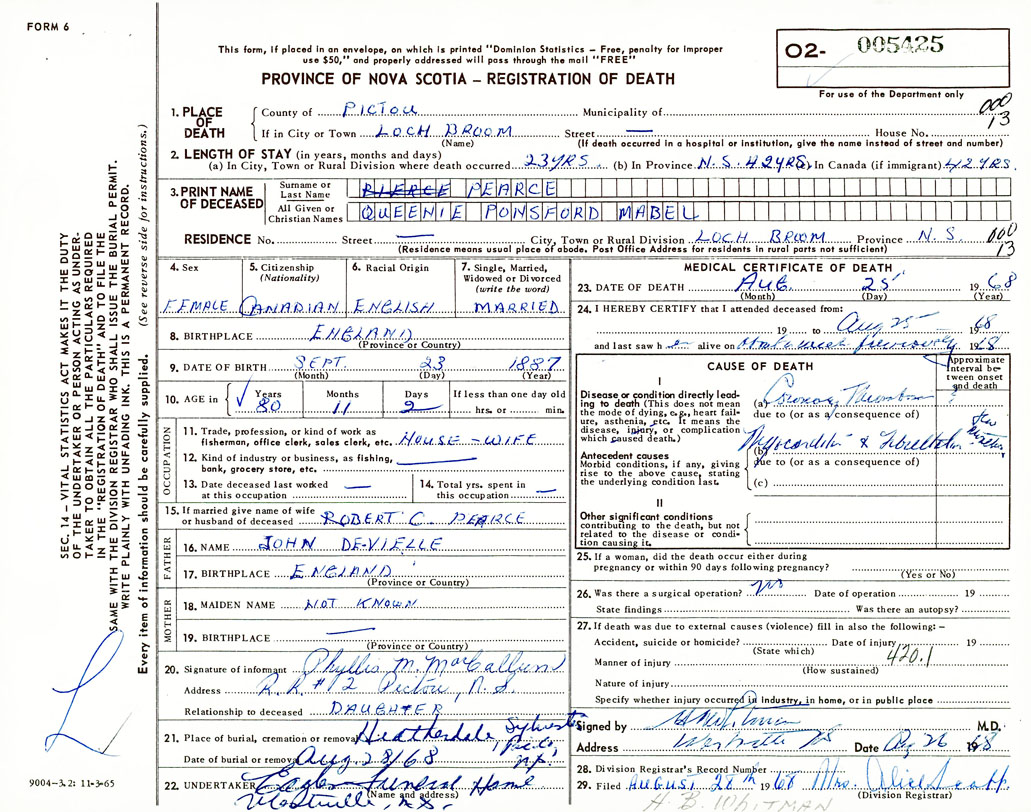 FORM 6
This form, if placed in an envelope, on which is printed "Dominion Statistics – Free, penalty for improper
use $50," and properly addressed will pass through the mail "FREE"
PROVINCE OF NOVA SCOTIA – REGISTRATION OF DEATH
O2- 005425
For use of the Department only
1. PLACE OF DEATH
County of PICTOU Municipality of
000
13
If in City or Town LOCH BROOM Street — House No.
(Name) (If death occurred in a hospital or institution, give the name instead of street and number)
2. LENGTH OF STAY (in years, months and days)
(a) In City, Town or Rural Division where death occurred 23 YRS. (b) In Province N.S. 42 YRS. In Canada (if immigrant) 42 YRS.
3. PRINT NAME OF DECEASED
Surname or Last Name PIERCE PEARCE
All Given or Christian Names QUEENIE PONSFORD MABEL
RESIDENCE No. Street — City, Town or Rural Division LOCH BROOM Province N.S.
000
13
(Residence means usual place of abode. Post Office Address for residents in rural parts not sufficient)
4. Sex FEMALE
5. Citizenship (Nationality) CANADIAN
6. Racial Origin ENGLISH
7. Single, Married, Widowed or Divorced (write the word) MARRIED
8. BIRTHPLACE ENGLAND
(Province or Country)
9. DATE OF BIRTH SEPT. 23 1887
(Month) (Day) (Year)
10. AGE in Years 80 Months 11 Days 2 If less than one day old hrs. or min.
OCCUPATION
11. Trade, profession, or kind of work as
fisherman, office clerk, sales clerk, etc. HOUSE-WIFE
12. Kind of industry or business, as fishing,
bank, grocery store, etc. —
13. Date deceased last worked
at this occupation —
14. Total yrs. spent in
this occupation —
15. If married give name of wife
or husband of deceased ROBERT C. PEARCE
FATHER
16. NAME JOHN DE-VIELLE
17. BIRTHPLACE ENGLAND
(Province or Country)
MOTHER
18. MAIDEN NAME NOT KNOWN
19. BIRTHPLACE —
(Province or Country)
20. Signature of informant Phyllis M. MacCallum
Address R.R. #2 Pictou, N.S.
Relationship to deceased DAUGHTER
21. Place of burial, cremation or removal Heatherdale Sylvester
Pic. Co.
N.S.
Date of burial or removal Aug. 28/68
22. UNDERTAKER Eagles Funeral Home
(Name and address)
Westville, N.S.
MEDICAL CERTIFICATE OF DEATH
23. DATE OF DEATH Aug. 25 1968
(Month) (Day) (Year)
24. I HEREBY CERTIFY that I attended deceased from:
19 to Aug 25 1968
and last saw h er alive on about a week previously 1968
CAUSE OF DEATH
Approximate interval between onset and death
I
Disease or condition directly leading to death (This does not mean
the mode of dying, e.g., heart failure, asthenia, etc. It means the
disease, injury, or complication
which caused death.)
(a) Coronary Thrombosis ?
due to (or as a consequence of)
Antecedent causes
Morbid conditions, if any, giving
rise to the above cause, stating
the underlying condition last.
(b) Myocarditis & Fibrillation
due to (or as a consequence of)
(c)
II
Other significant conditions
contributing to the death, but not
related to the disease or condition causing it.
25. If a woman, did the death occur either during
pregnancy or within 90 days following pregnancy?
(Yes or No)
26. Was there a surgical operation? no Date of operation 19
State findings Was there an autopsy?
27. If death was due to external causes (violence) fill in also the following:–
Accident, suicide or homicide? Date of injury 19
(State which)
420.1
Manner of injury
(How sustained)
Nature of injury
Specify whether injury occurred in industry, in home, or in public place
Signed by H B Whitman M.D.
Address Westville NS Date Aug 26 1968
28. Division Registrar's Record Number
29. Filed AUGUST 28th 1968 Mrs. Alice
(Division Registrar)
H. B. WHITMAN
SEC. 14 – VITAL STATISTICS ACT MAKES IT THE DUTY
OF THE UNDERTAKER OR PERSON ACTING AS UNDER-
TAKER TO OBTAIN ALL THE PARTICULARS REQUIRED
IN THE "REGISTRATION OF DEATH" AND TO FILE THE
SAME WITH THE DIVISION REGISTRAR WHO SHALL ISSUE THE BURIAL PERMIT.
WRITE PLAINLY WITH UNFADING INK. THIS IS A PERMANENT RECORD.
Every item of information should be carefully supplied. (See reverse side for instructions.)
9004-3.2: 11-3-65